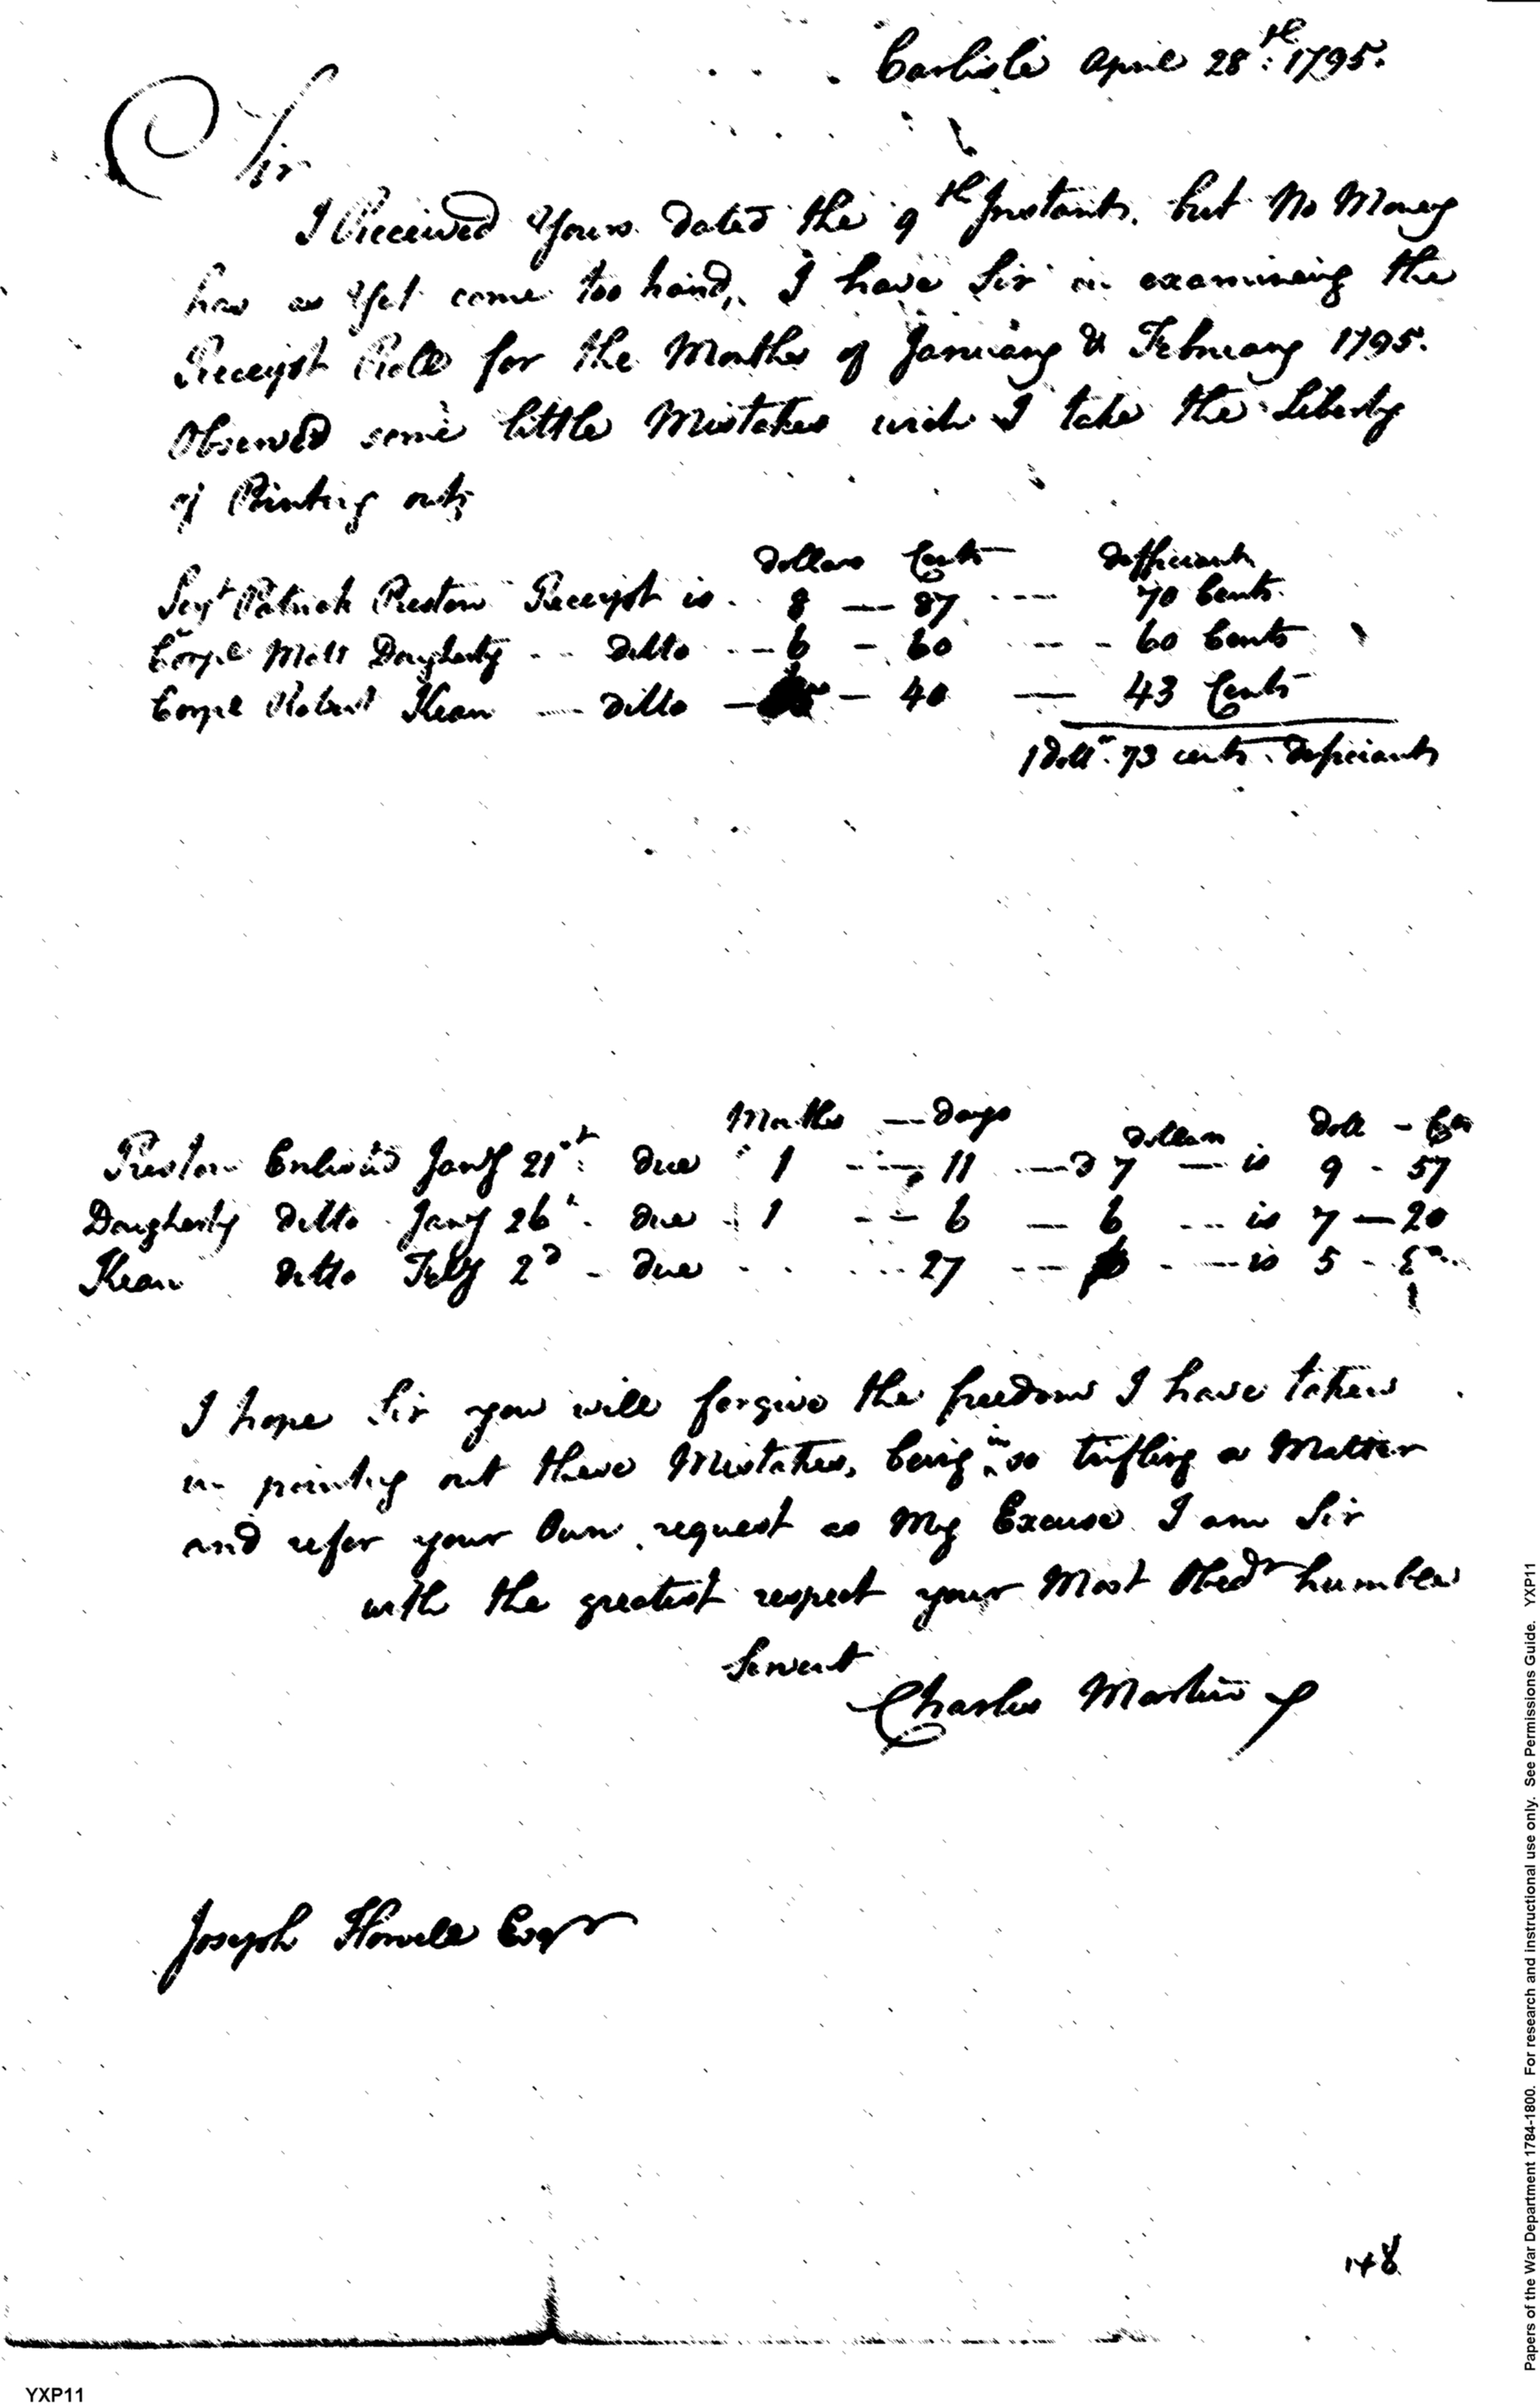 Carlisle April 28th: 1795.
Sir
I Received Yours dated the 9th Instant, but No Money
has as Yet come too hand, I have Sir in examineing the
Receipt Rolls for the Months of January & February 1795.
Observed some little Mistakes wich I take the Liberty
of Pointing out,
dollars Cents defficient
Sergt Patrick Preston Receipt is . 8 — 87 --- 70 Cents.
Corpl Matt Dougherty -- ditto -- 6 - 60 --- 60 Cents
Corpl Robert Kean — ditto — - 40 — 43 Cents
1 doll. 73 cents. deficient
Months — days dollars doll - Cts
Preston Enlisted Jany 21st: due 1 --- 11 — @ 7 — is 9 - 57
Dougherty ditto Jany 26th. due 1 -- 6 — 6 --- is 7 — 20
Kean ditto Feby 2d - due . . . . 27 --- - — is 5 -
I hope Sir you will forgive the freedom I have taken
in pointing out these Mistakes, being in so trifling a Matter
and refer your Own request as My Excuse. I am Sir
with the greatest respect your Most Obedt humble
Servent
Charles Martin
Joseph Howell Esqr
148
YXP11
Papers of the War Department 1784-1800. For research and instructional use only. See Permissions Guide. YXP11